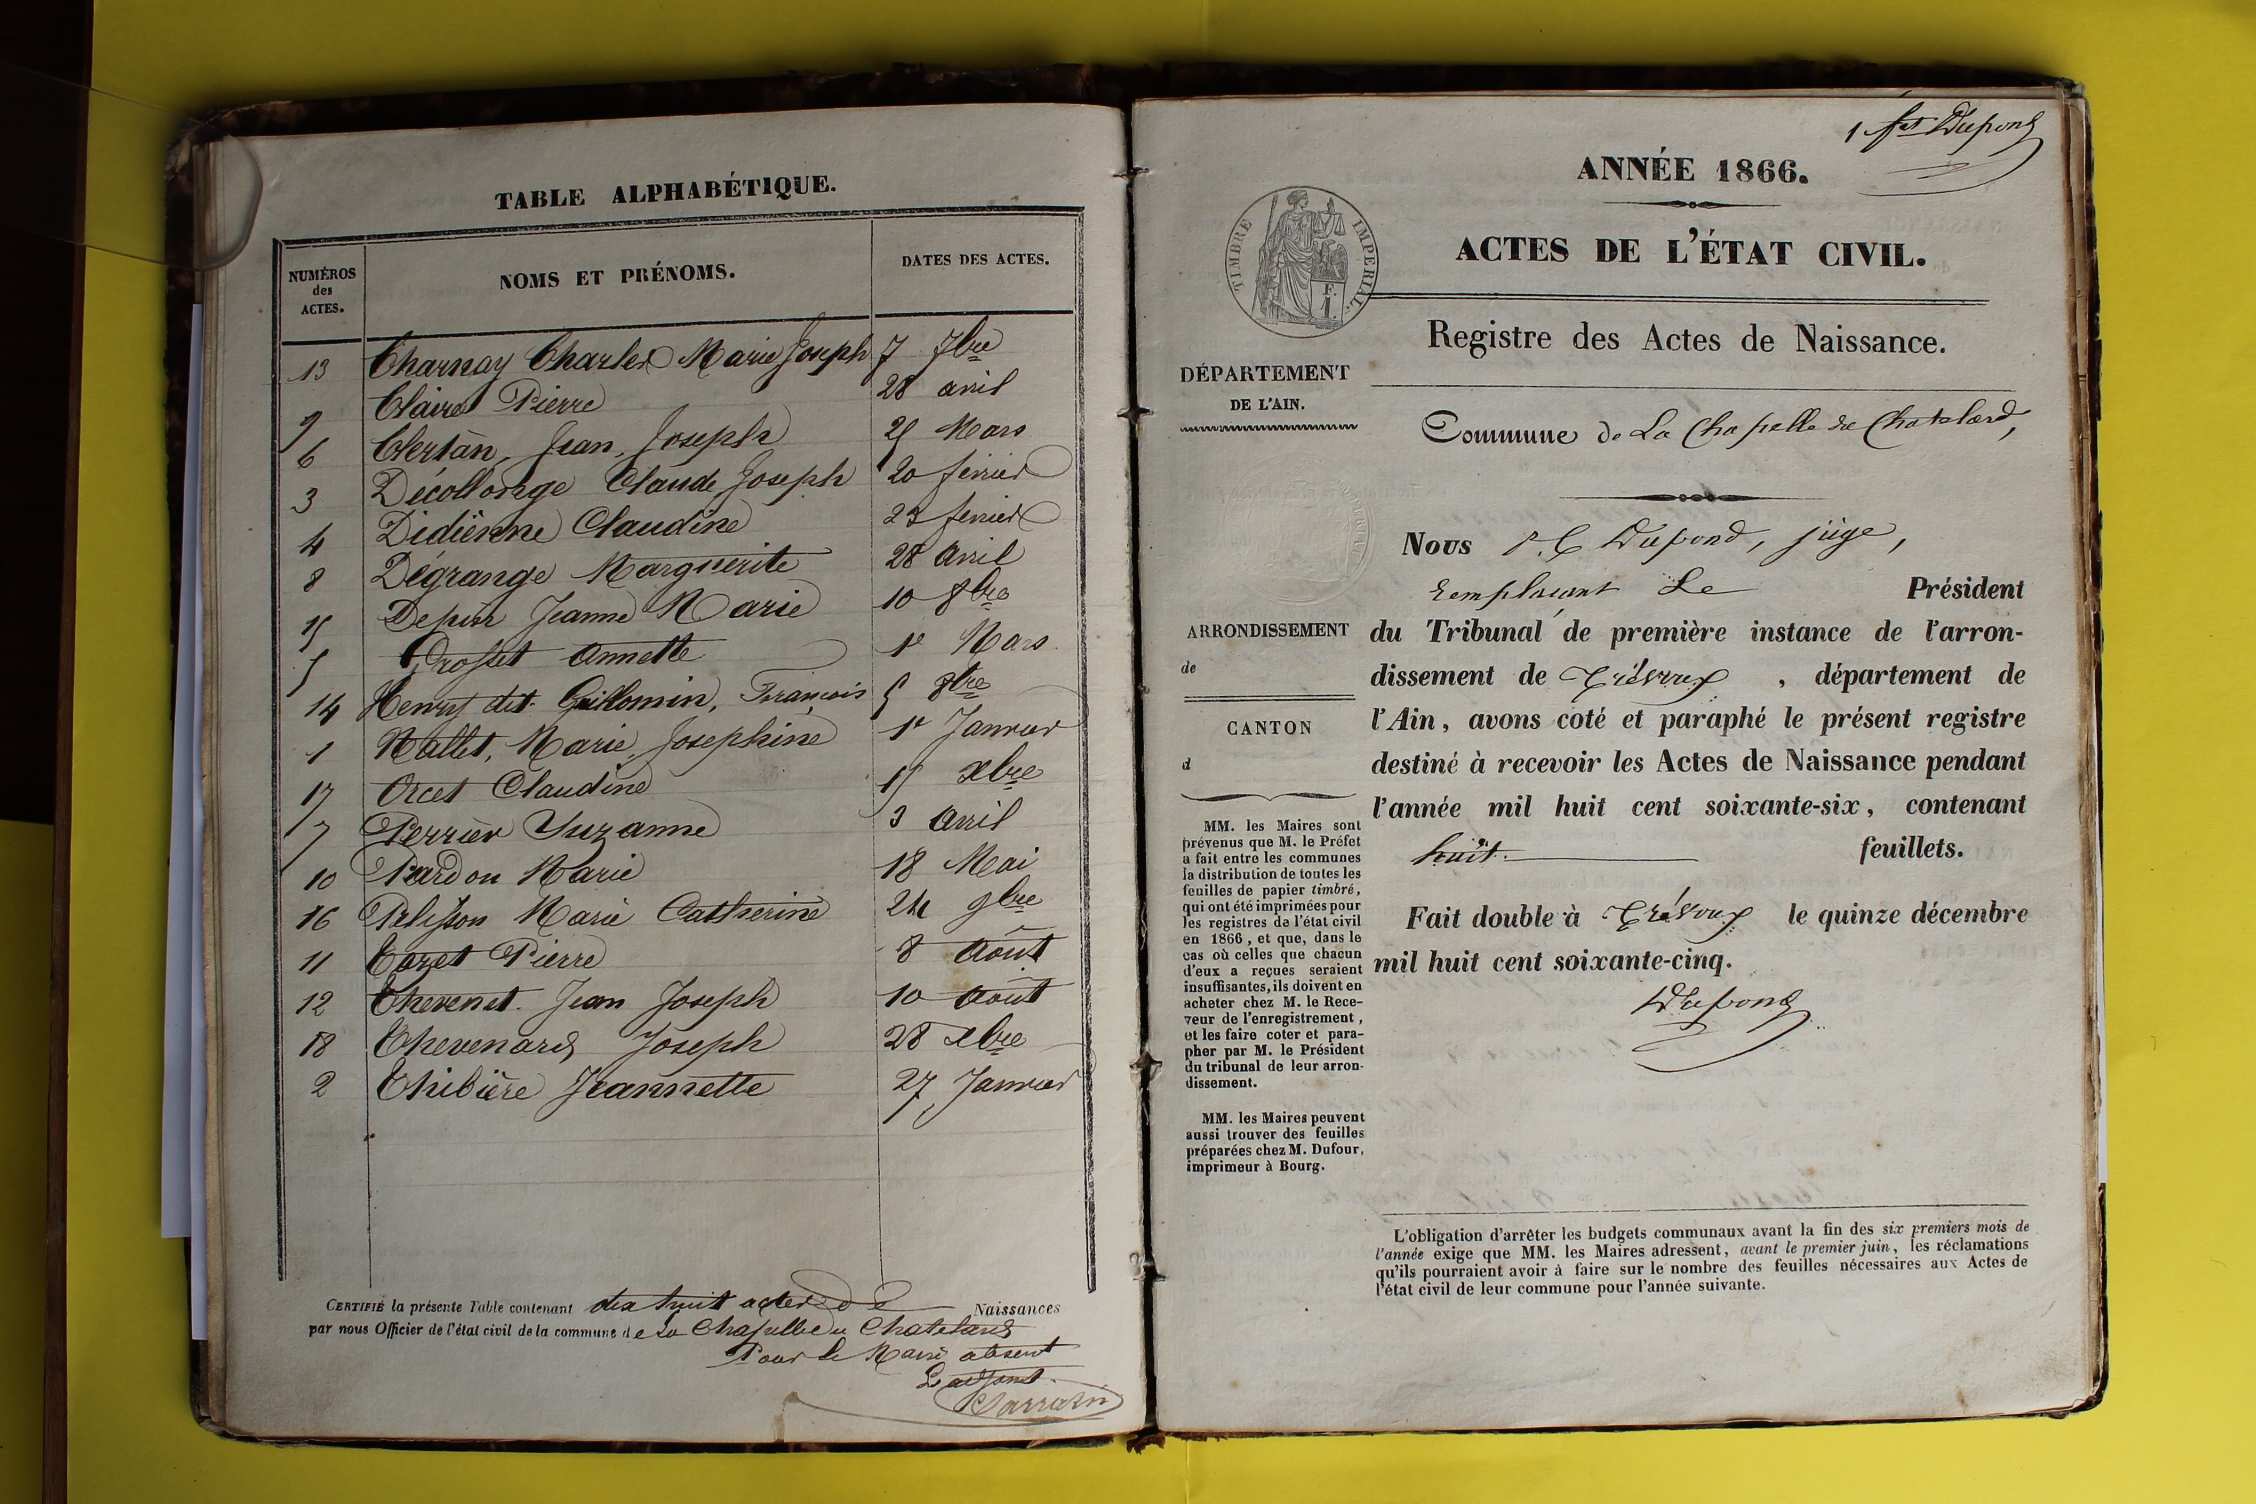 TABLE ALPHABÉTIQUE.
NUMÉROS
des
ACTES.
NOMS ET PRÉNOMS.
DATES DES ACTES.
13 Charnay Charles Marie Joseph 7 7bre
9 Claire Pierre 28 avril
6 Clertan, Jean, Joseph 25 Mars
3 Décollonge Claude Joseph 20 février
4 Didiènne Claudine 23 février
8 Dégrange Marguerite 28 avril
15 Jeanne Marie 10 8bre
5 Grosset Annette 1er Mars
14 Henry dit Guillomin, François 5 8bre
1 Mallet, Marie, Josephine 1er Janvier
17 Orcet Claudine 15 xbre
7 Perrier Suzanne 3 avril
10 Pardon Marie 18 Mai
16 Pelisson Marie Catherine 24 9bre
11 Pierre 8 Août
12 Thevenet Jean Joseph 10 Août
18 Thevenard Joseph 28 xbre
2 Thibière Jeannette 27 Janvier
CERTIFIÉ la présente Table contenant dix huit actes de Naissances
par nous Officier de l'état civil de la commune de La Chapelle du Chatelard
Pour le Maire absent
L'adjoint
Sarrazin
1 fet Dupond
ANNÉE 1866.
TIMBRE IMPÉRIAL.
ACTES DE L'ÉTAT CIVIL.
Registre des Actes de Naissance.
DÉPARTEMENT
DE L'AIN.
Commune de La Chapelle du Chatelard,
Nous Dupond, juge,
remplaçant Le Président
ARRONDISSEMENT
de
CANTON
d
du Tribunal de première instance de l'arron-
dissement de Trévoux, département de
l'Ain, avons coté et paraphé le présent registre
destiné à recevoir les Actes de Naissance pendant
l'année mil huit cent soixante-six, contenant
huit feuillets.
Fait double à Trévoux le quinze décembre
mil huit cent soixante-cinq.
Dupond
MM. les Maires sont
prévenus que M. le Préfet
a fait entre les communes
la distribution de toutes les
feuilles de papier timbré,
qui ont été imprimées pour
les registres de l'état civil
en 1866, et que, dans le
cas où celles que chacun
d'eux a reçues seraient
insuffisantes, ils doivent en
acheter chez M. le Rece-
veur de l'enregistrement,
et les faire coter et para-
pher par M. le Président
du tribunal de leur arron-
dissement.
MM. les Maires peuvent
aussi trouver des feuilles
préparées chez M. Dufour,
imprimeur à Bourg.
L'obligation d'arrêter les budgets communaux avant la fin des six premiers mois de
l'année exige que MM. les Maires adressent, avant le premier juin, les réclamations
qu'ils pourraient avoir à faire sur le nombre des feuilles nécessaires aux Actes de
l'état civil de leur commune pour l'année suivante.